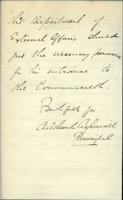 the Department of
External Affairs should
put the necessary permission
for his entrance to
the Commonwealth.
Faithfully yrs
Principal